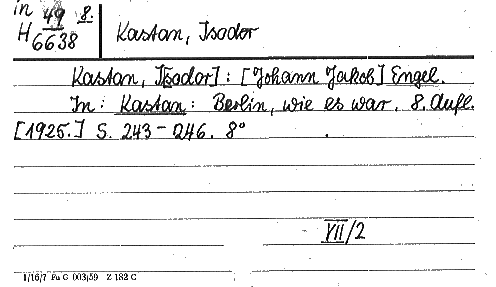 in 49 8.
H 6638
Kastan, Isodor
Kastan, I[sodor]: [Johann Jakob] Engel.
In: Kastan: Berlin, wie es war. 8. Aufl.
[1925.] S. 243-246. 8°
VII/2
1/16/7 Fu G 003/59 Z 182 C